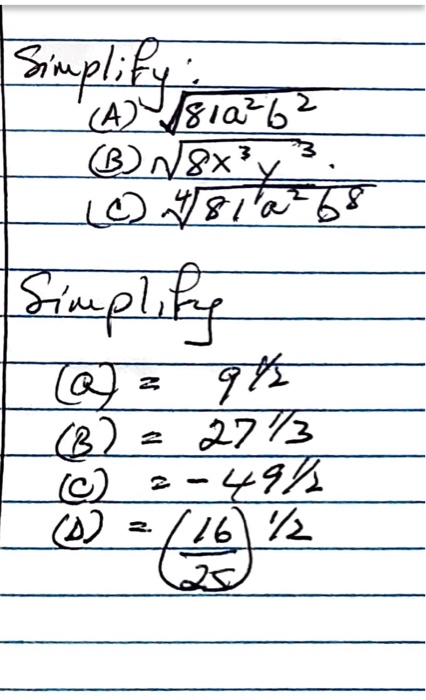 Simplify:
(A) √81a²b²
(B) √8x³y³.
(C) ⁴√81a²b⁸
Simplify
(a) = 9 1/2
(B) = 27 1/3
(C) = -49 1/2
(D) = (16/25) 1/2